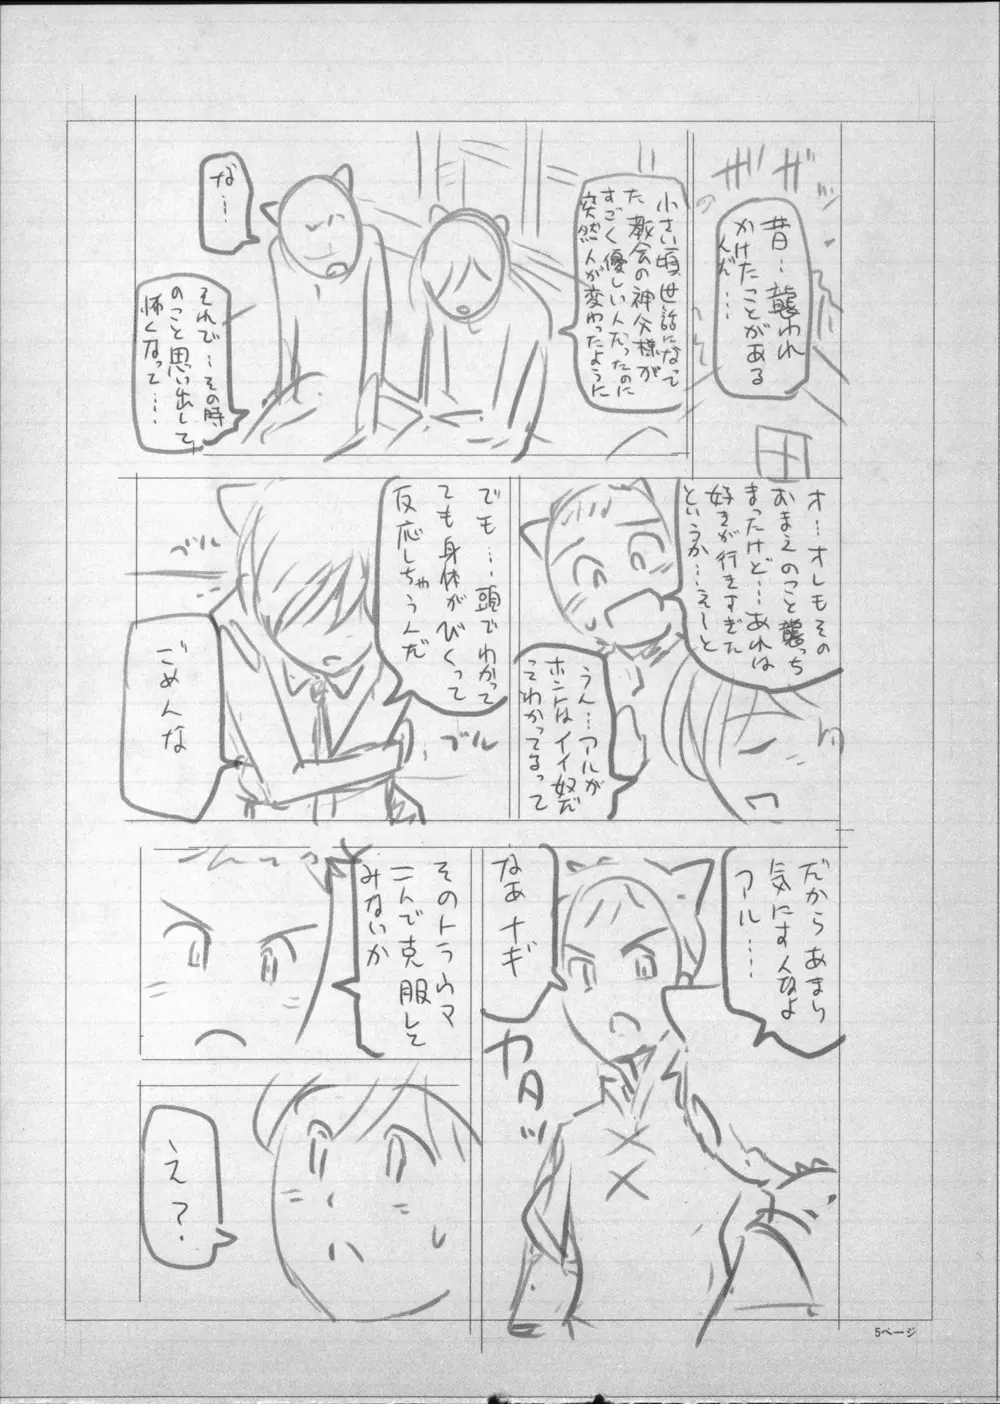 ザザザッ
昔…襲われ
かけたことがある
んだ……
小さい頃世話になって
た教会の神父様が
すごく優しい人だったのに
突然人が変わったように
な…
それで…その時
のこと思い出して
怖くなって……
オ…オレもその
おまえのこと襲っち
まったけど…あれは
好きが行きすぎた
というか…えーと
うん…アルが
ホントはイイ奴だ
ってわかってるって
でも…頭でわかって
ても身体がびくって
反応しちゃうんだ
ブル
ブル
ごめんな
だからあまり
気にすんなよ
アル……
なあナギ
ガタッ
そのトラウマ
二人で克服して
みないか
え?
5ページ